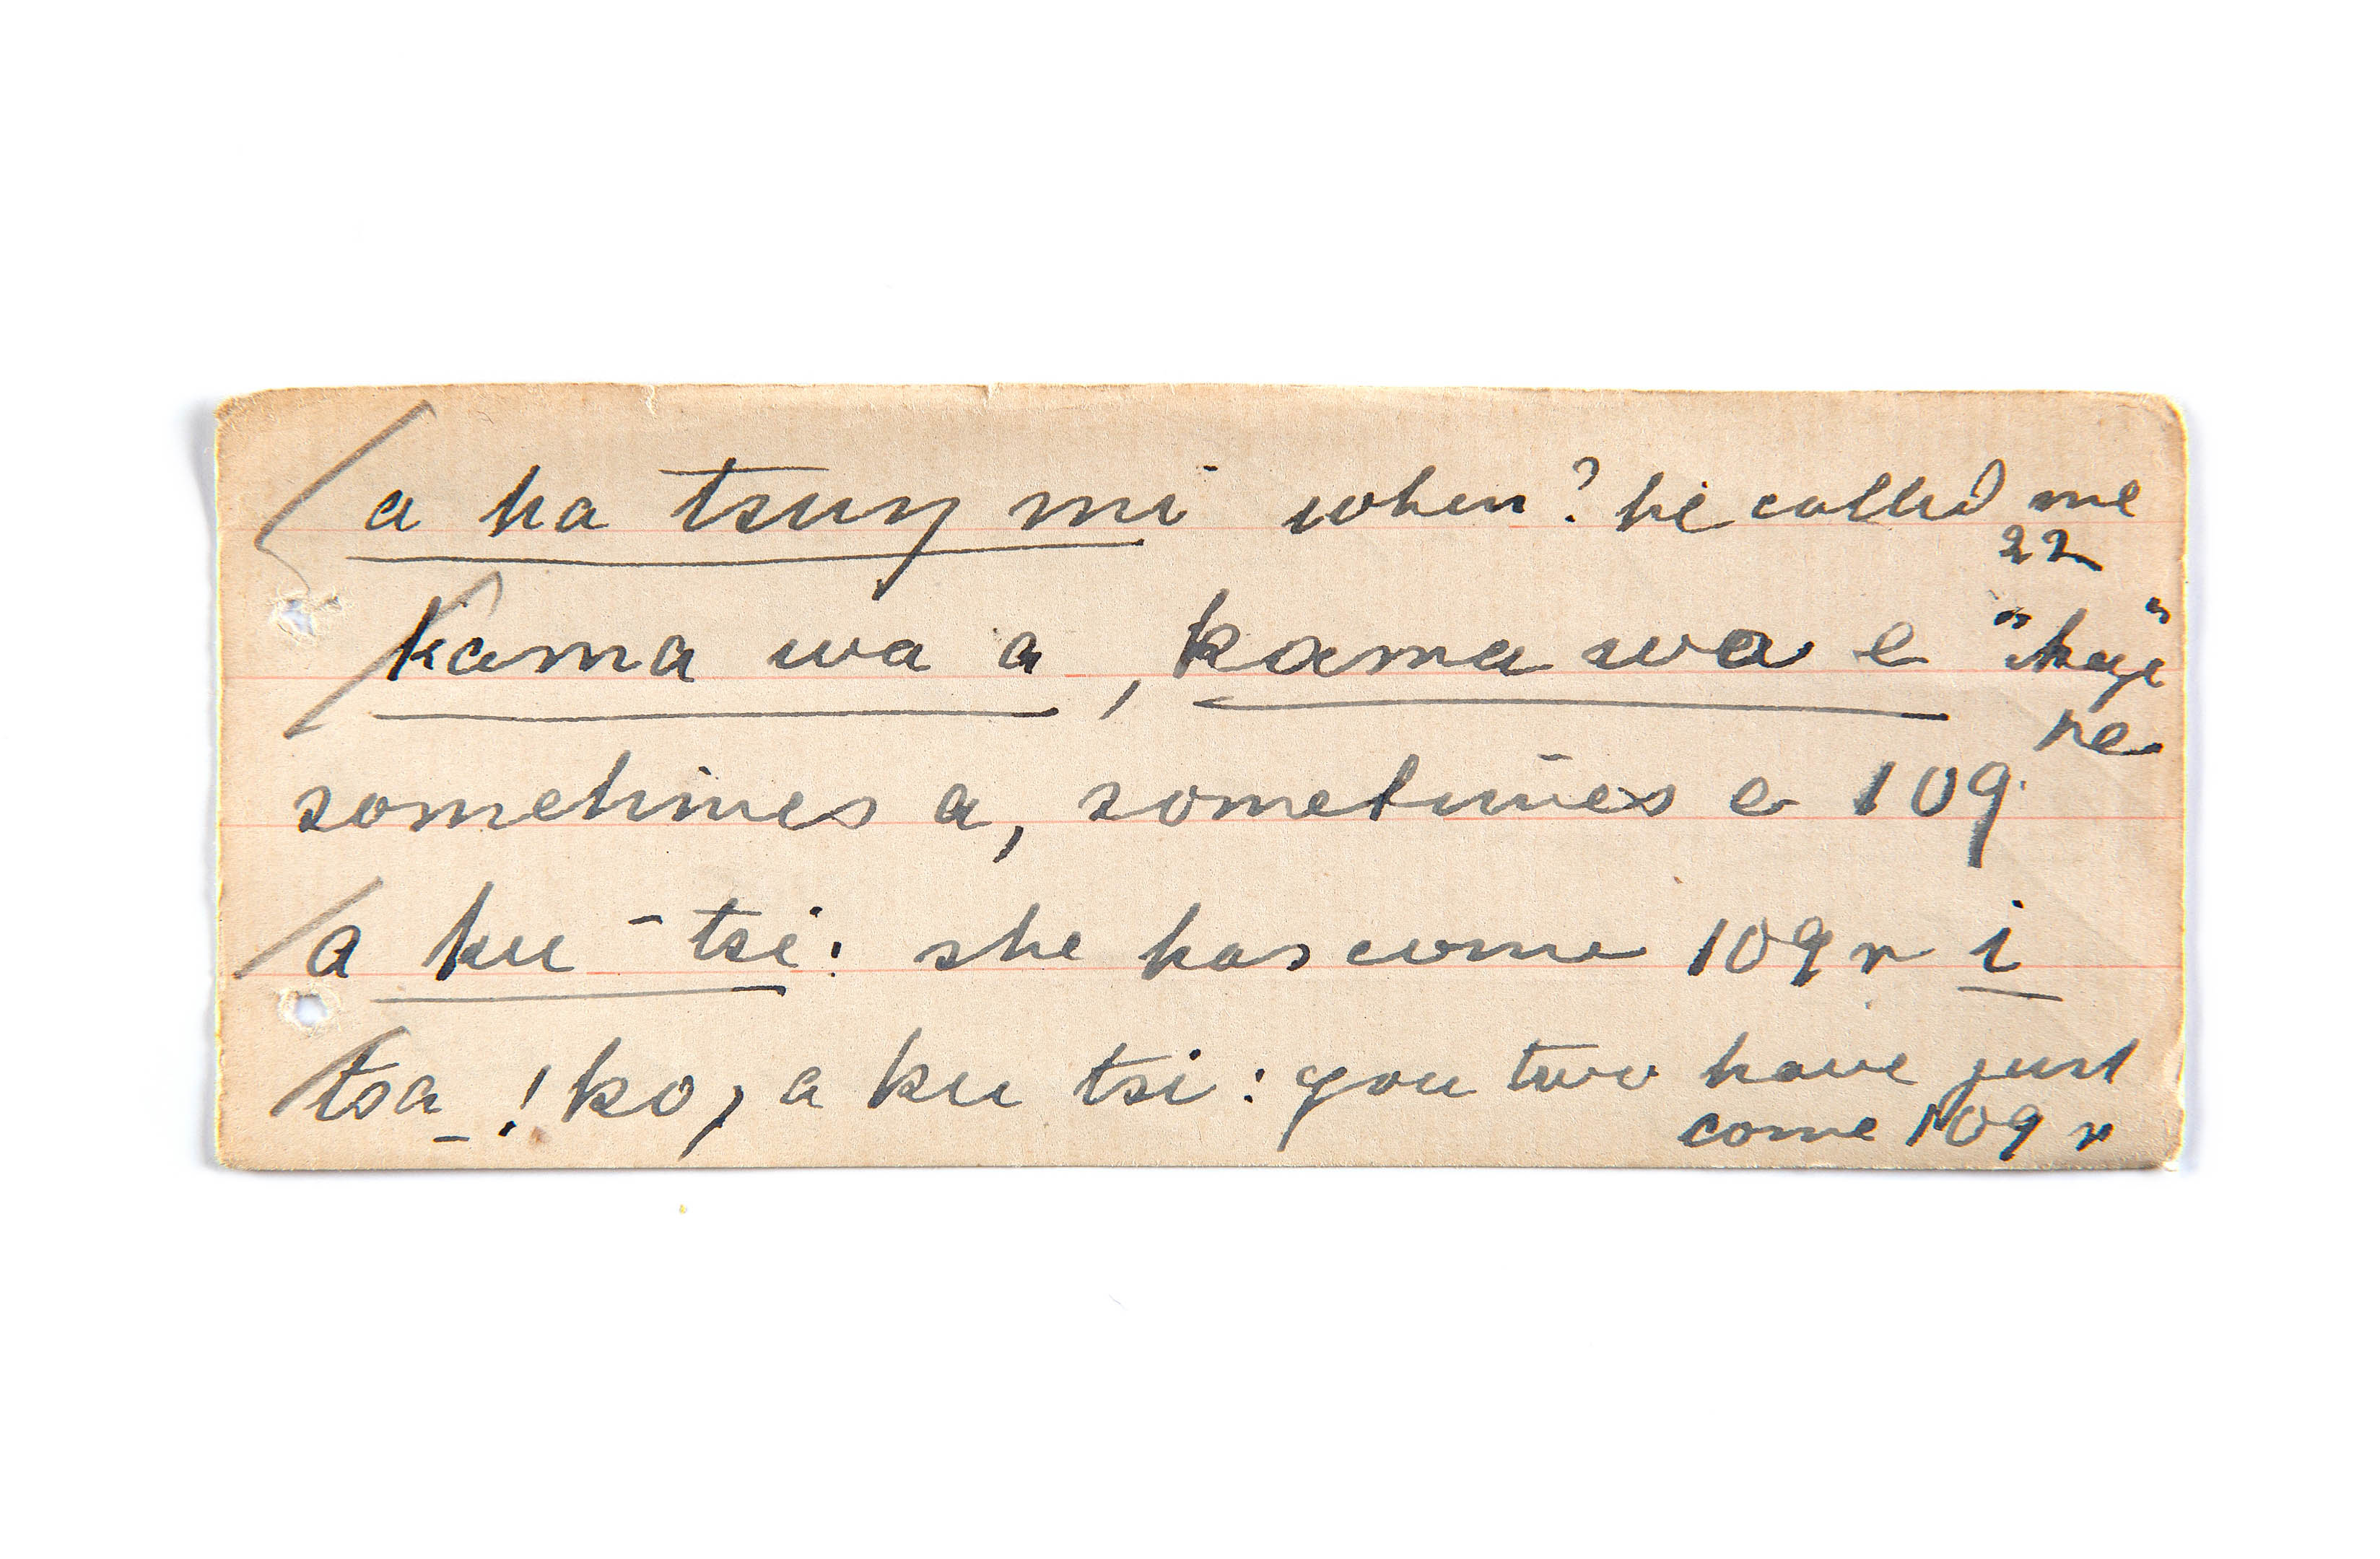 a ha tsuŋ mi when? he called me
22
Kama wa a, kama wa e
he
sometimes a, sometimes e 109
a ku - tsi: she has come 109 r i
tsa _ ! ko, a ku tsi: you two have just
come 109 r